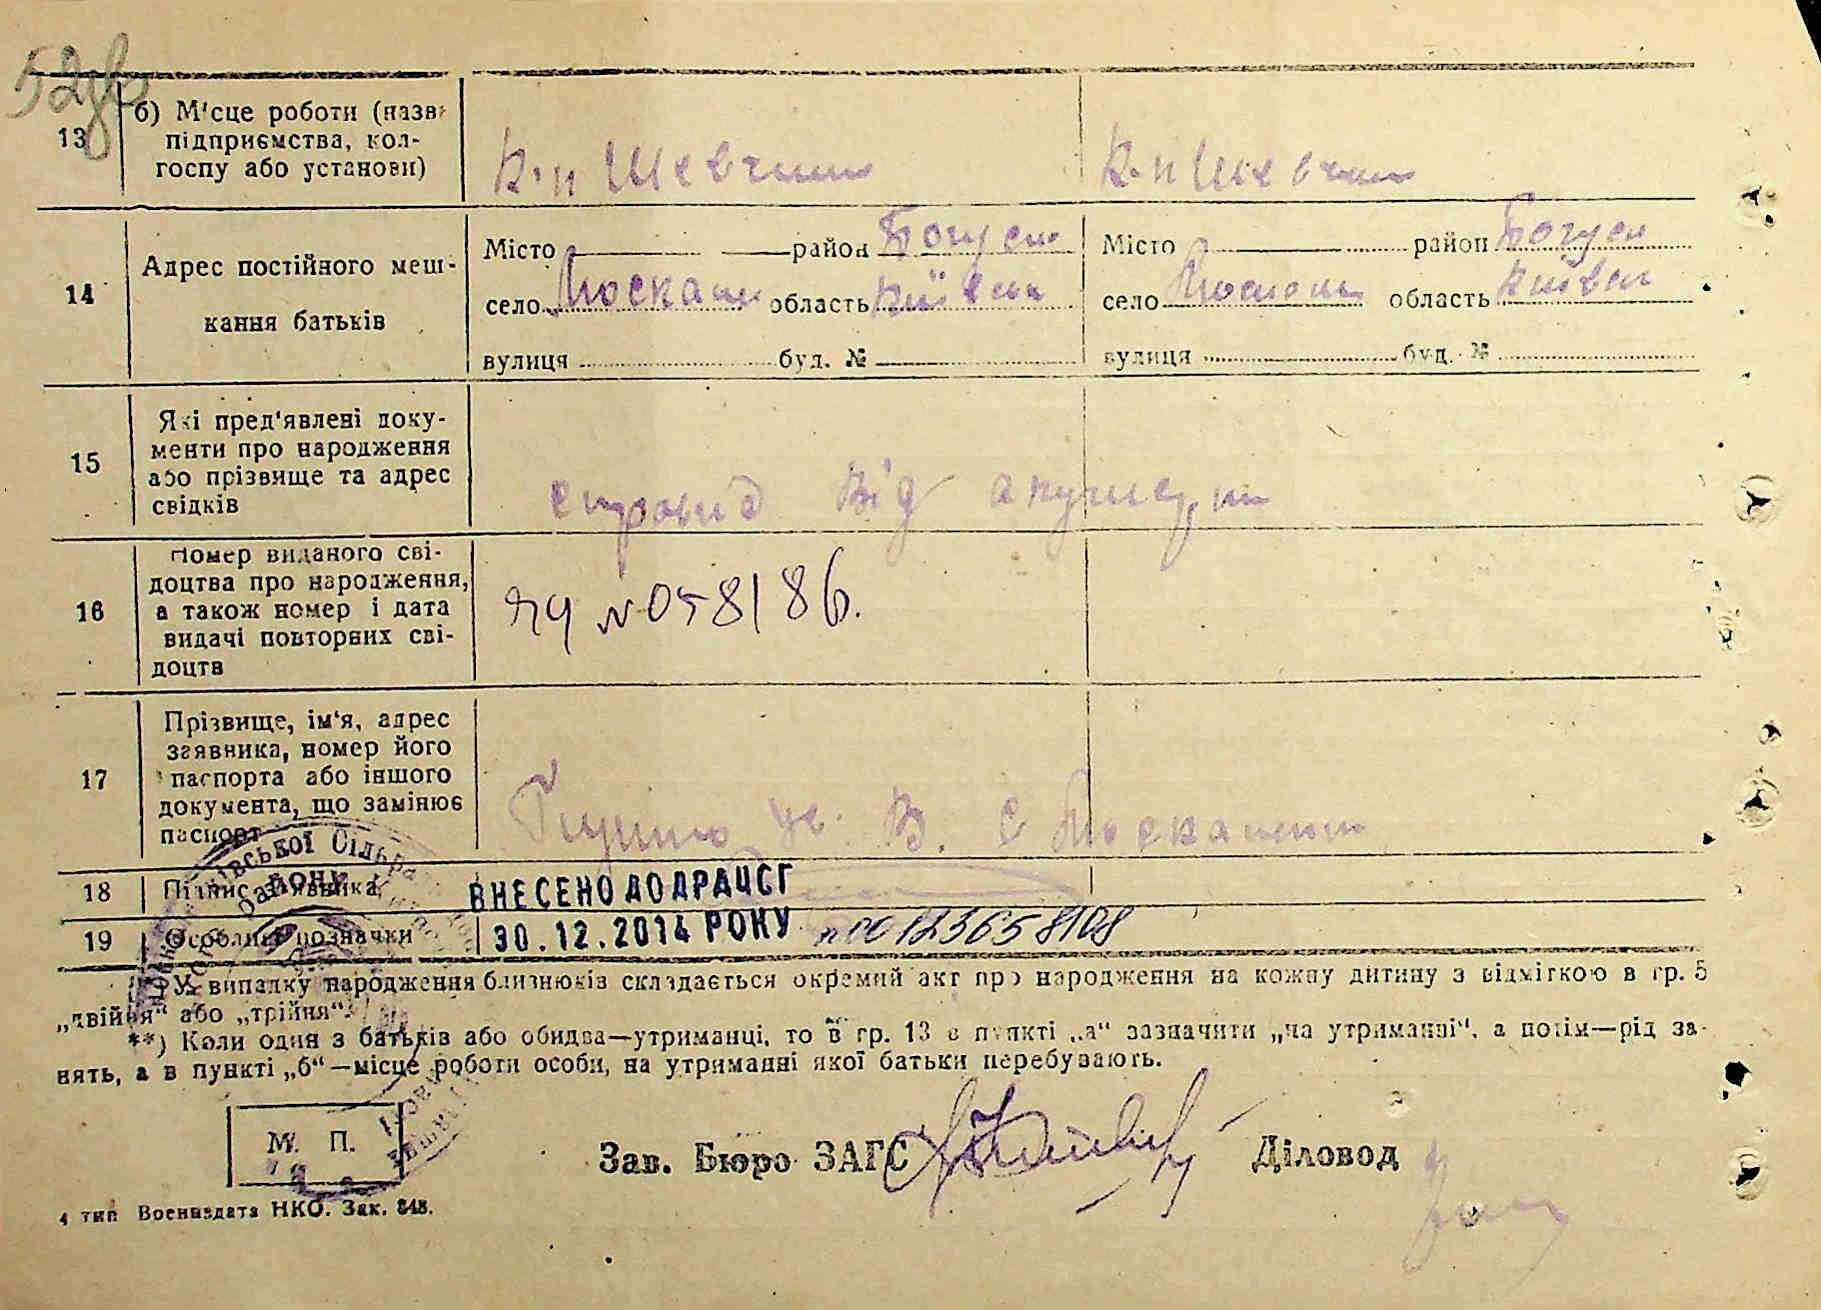 52зв
13 б) М'сце роботи (назв
підприємства, кол-
госпу або установи)
К-п Шевченк К-п Шевченк
14 Адрес постійного меш-
кання батьків
Місто район Богусл Місто район Богусл
село область Київськ село область Київськ
вулиця буд. № вулиця буд. №
15 Які пред'явлені доку-
менти про народження
або прізвище та адрес
свідків
від акушерки
16 Номер виданого сві-
доцтва про народження,
а також номер і дата
видачі повторних сві-
доцтв
ЯЧ №058186.
17 Прізвище, ім'я, адрес
заявника, номер його
паспорта або іншого
документа, що замінює
паспорт
В. С
18 Підпис заявника
ВНЕСЕНО ДО ДРАЦСГ
19 Особливі позначки
30.12.2014 РОКУ 00123658108
*) У випадку народження близнюків складається окремий акт про народження на кожну дитину з відміткою в гр. 5
„двійня“ або „трійня“.
**) Коли один з батьків або обидва—утриманці, то в гр. 13 в пункті „а“ зазначити „на утриманні“, а потім—рід за-
нять, а в пункті „б“—місце роботи особи, на утриманні якої батьки перебувають.
М. П.
Зав. Бюро ЗАГС Діловод
4 тип Воениздата НКО. Зак. 848.